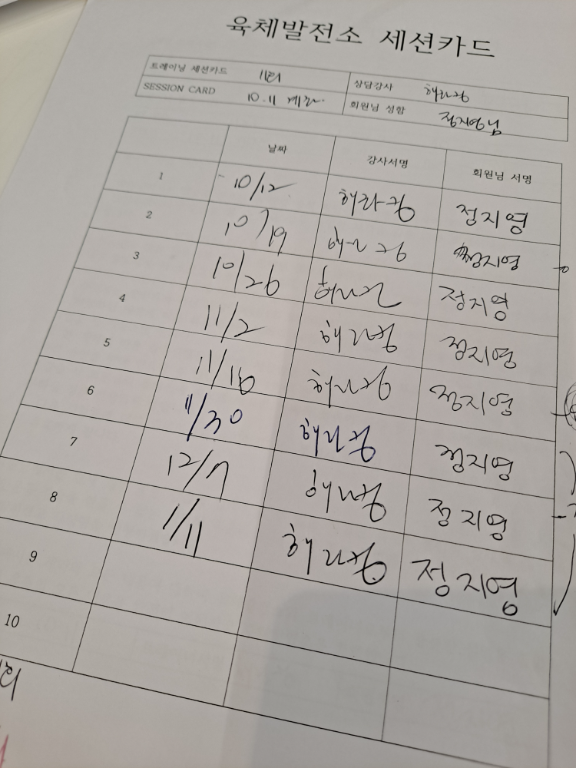 육체발전소 세션카드
트레이닝 세션카드 상담강사 해라짱
SESSION CARD 10.11 회원님 성함 정지영님
날짜 강사서명 회원님 서명
1 10/12 해라짱 정지영
2 10/19 해라짱 정지영
3 10/26 정지영
4 11/2 해라짱 정지영
5 11/16 해라짱 정지영
6 11/30 해라짱 정지영
7 12/7 해라짱 정지영
8 1/11 해라짱 정지영
9
10